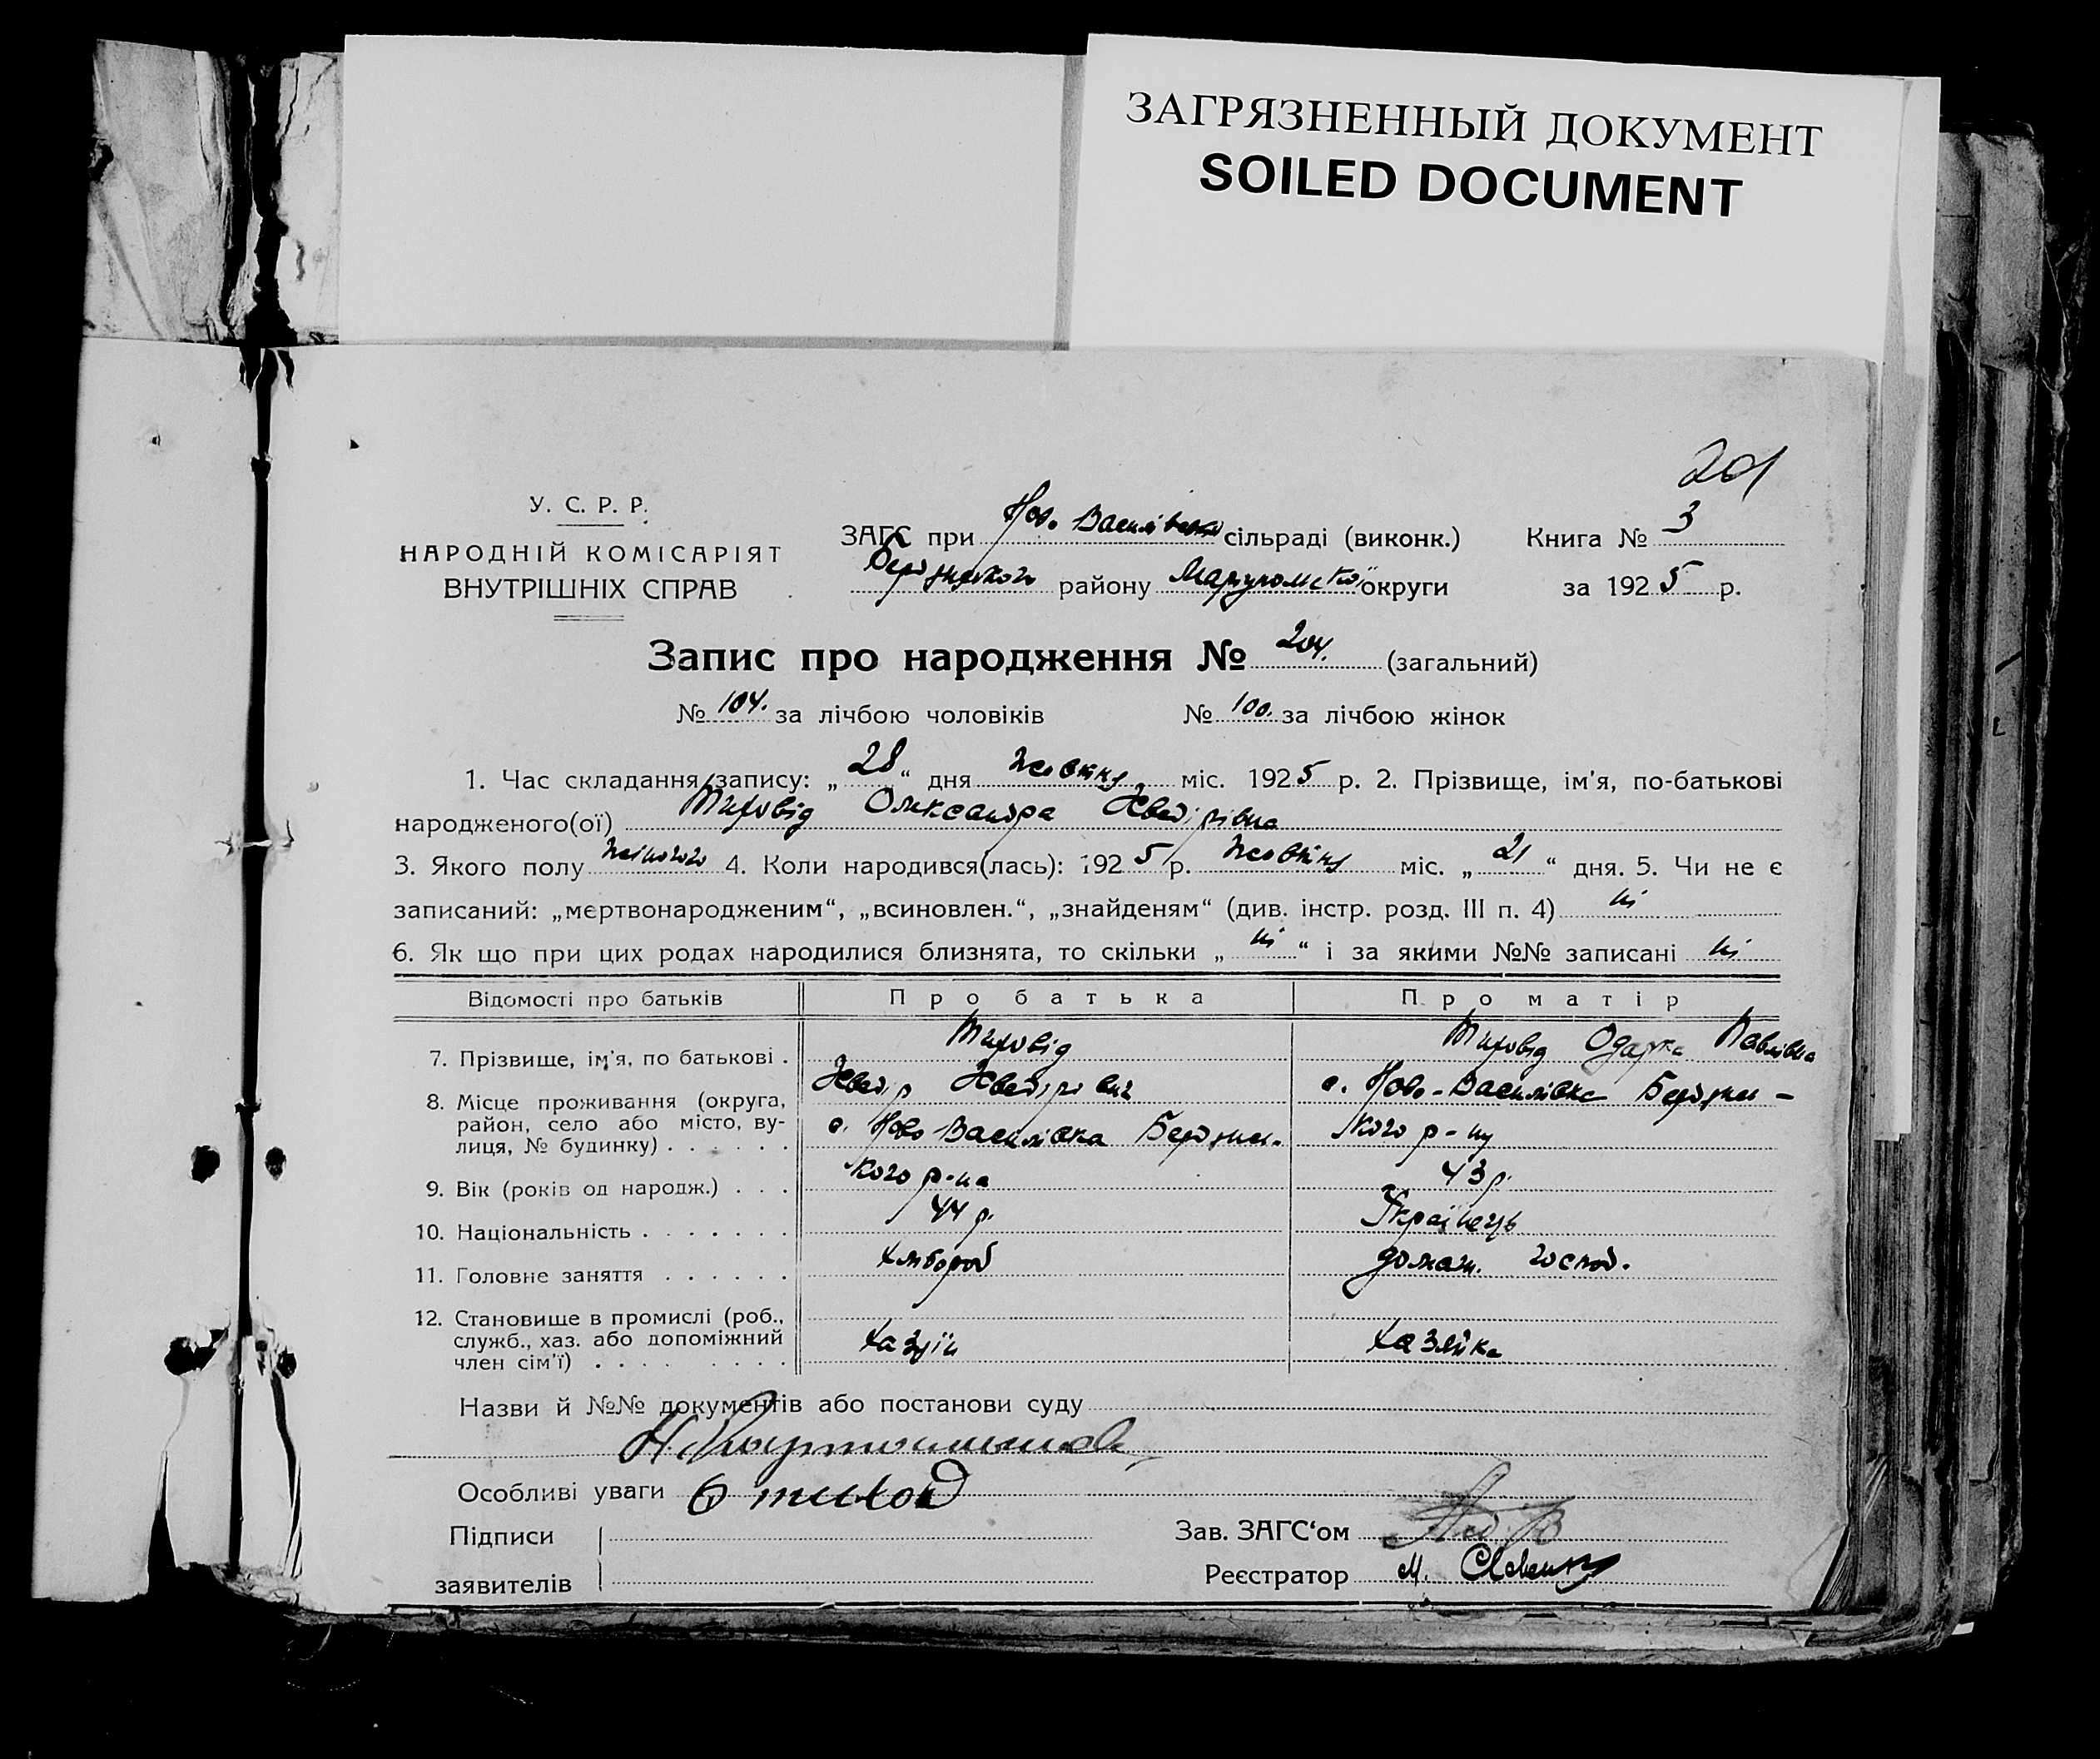 ЗАГРЯЗНЕННЫЙ ДОКУМЕНТ
SOILED DOCUMENT
201
У. С. Р. Р.
НАРОДНІЙ КОМІСАРІЯТ
ВНУТРІШНІХ СПРАВ
ЗАГС при Ново Василівській сільраді (виконк.) Книга № 3
району округи за 1925 р.
Запис про народження № 204. (загальний)
№ 104. за лічбою чоловіків № 100. за лічбою жінок
1. Час складання запису: „28“ дня жовтня міс. 1925 р. 2. Прізвище, ім'я, по-батькові
народженого(ої) Тиховід Олександра
3. Якого полу жіночого 4. Коли народився(лась): 1925 р. жовтня міс. „21“ дня. 5. Чи не є
записаний: „мертвонародженим“, „всиновлен.“, „знайденям“ (див. інстр. розд. III п. 4) ні
6. Як що при цих родах народилися близнята, то скільки „ні“ і за якими №№ записані ні
Відомості про батьків Про батька Про матір
7. Прізвище, ім'я, по батькові . Тиховід Тиховід Одарка Павлівна
8. Місце проживання (округа, район, село або місто, вулиця, № будинку) . . . . . . с. Ново-Василівка кого р-на с. Ново-Василівка кого р-ну
9. Вік (років од народж.) . . . 44 р. 43 р.
10. Національність . . . . . . . Українець
11. Головне заняття . . . . . . хлібороб домаш. господ.
12. Становище в промислі (роб., служб., хаз. або допоміжний член сім'ї) . . . . . . . . . хазяїн хазяйка
Назви й №№ документів або постанови суду
Особливі уваги
Підписи
заявителів
Зав. ЗАГС'ом
Реєстратор М.